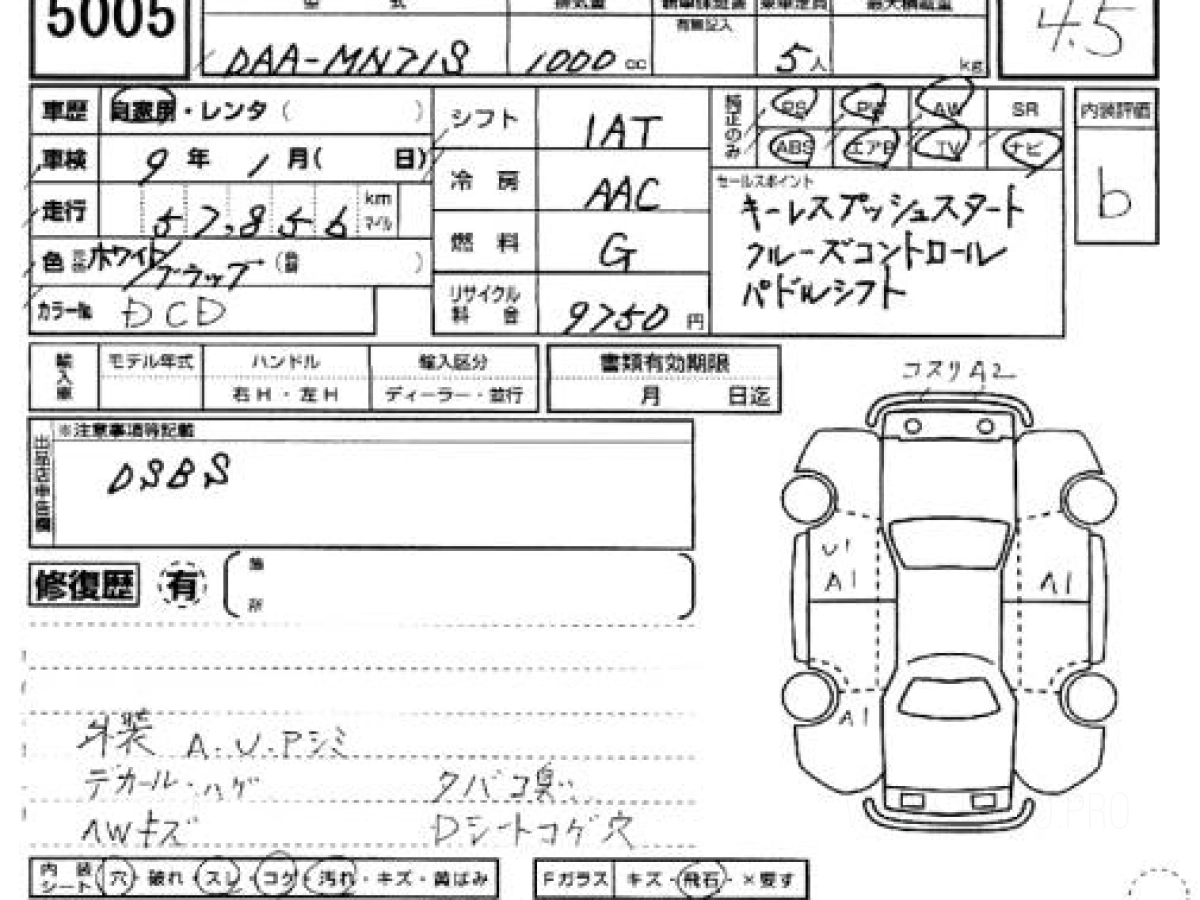 5005
型 式 排気量 新車保証書 乗車定員 最大積載量
有無記入
DAA-MN71S 1000 cc 5人 kg 4.5
車歴 自家用・レンタ( )
車検 9年 1月( 日)
走行 57,856 km マイル
色 元色 ホワイト/ブラック (色替 )
カラーNo. DCD
シフト IAT
冷房 AAC
燃料 G
リサイクル料金 9750円
純正のみ PS PW AW SR
ABS エアB TV ナビ
セールスポイント
キーレスプッシュスタート
クルーズコントロール
パドルシフト
内装評価
b
輸入車 モデル年式 ハンドル 輸入区分
右H・左H ディーラー・並行
書類有効期限
月 日迄
※注意事項等記載
DSBS
修復歴 有 箇所
外装 A.U.Pシミ
デカール.ハゲ タバコ臭い
AWキズ Dシートコゲ穴
内装シート 穴・破れ・スレ・コゲ・汚れ・キズ・黄ばみ
Fガラス キズ・飛石・×要す
コスリA2
U1
A1 A1
A1
PRO